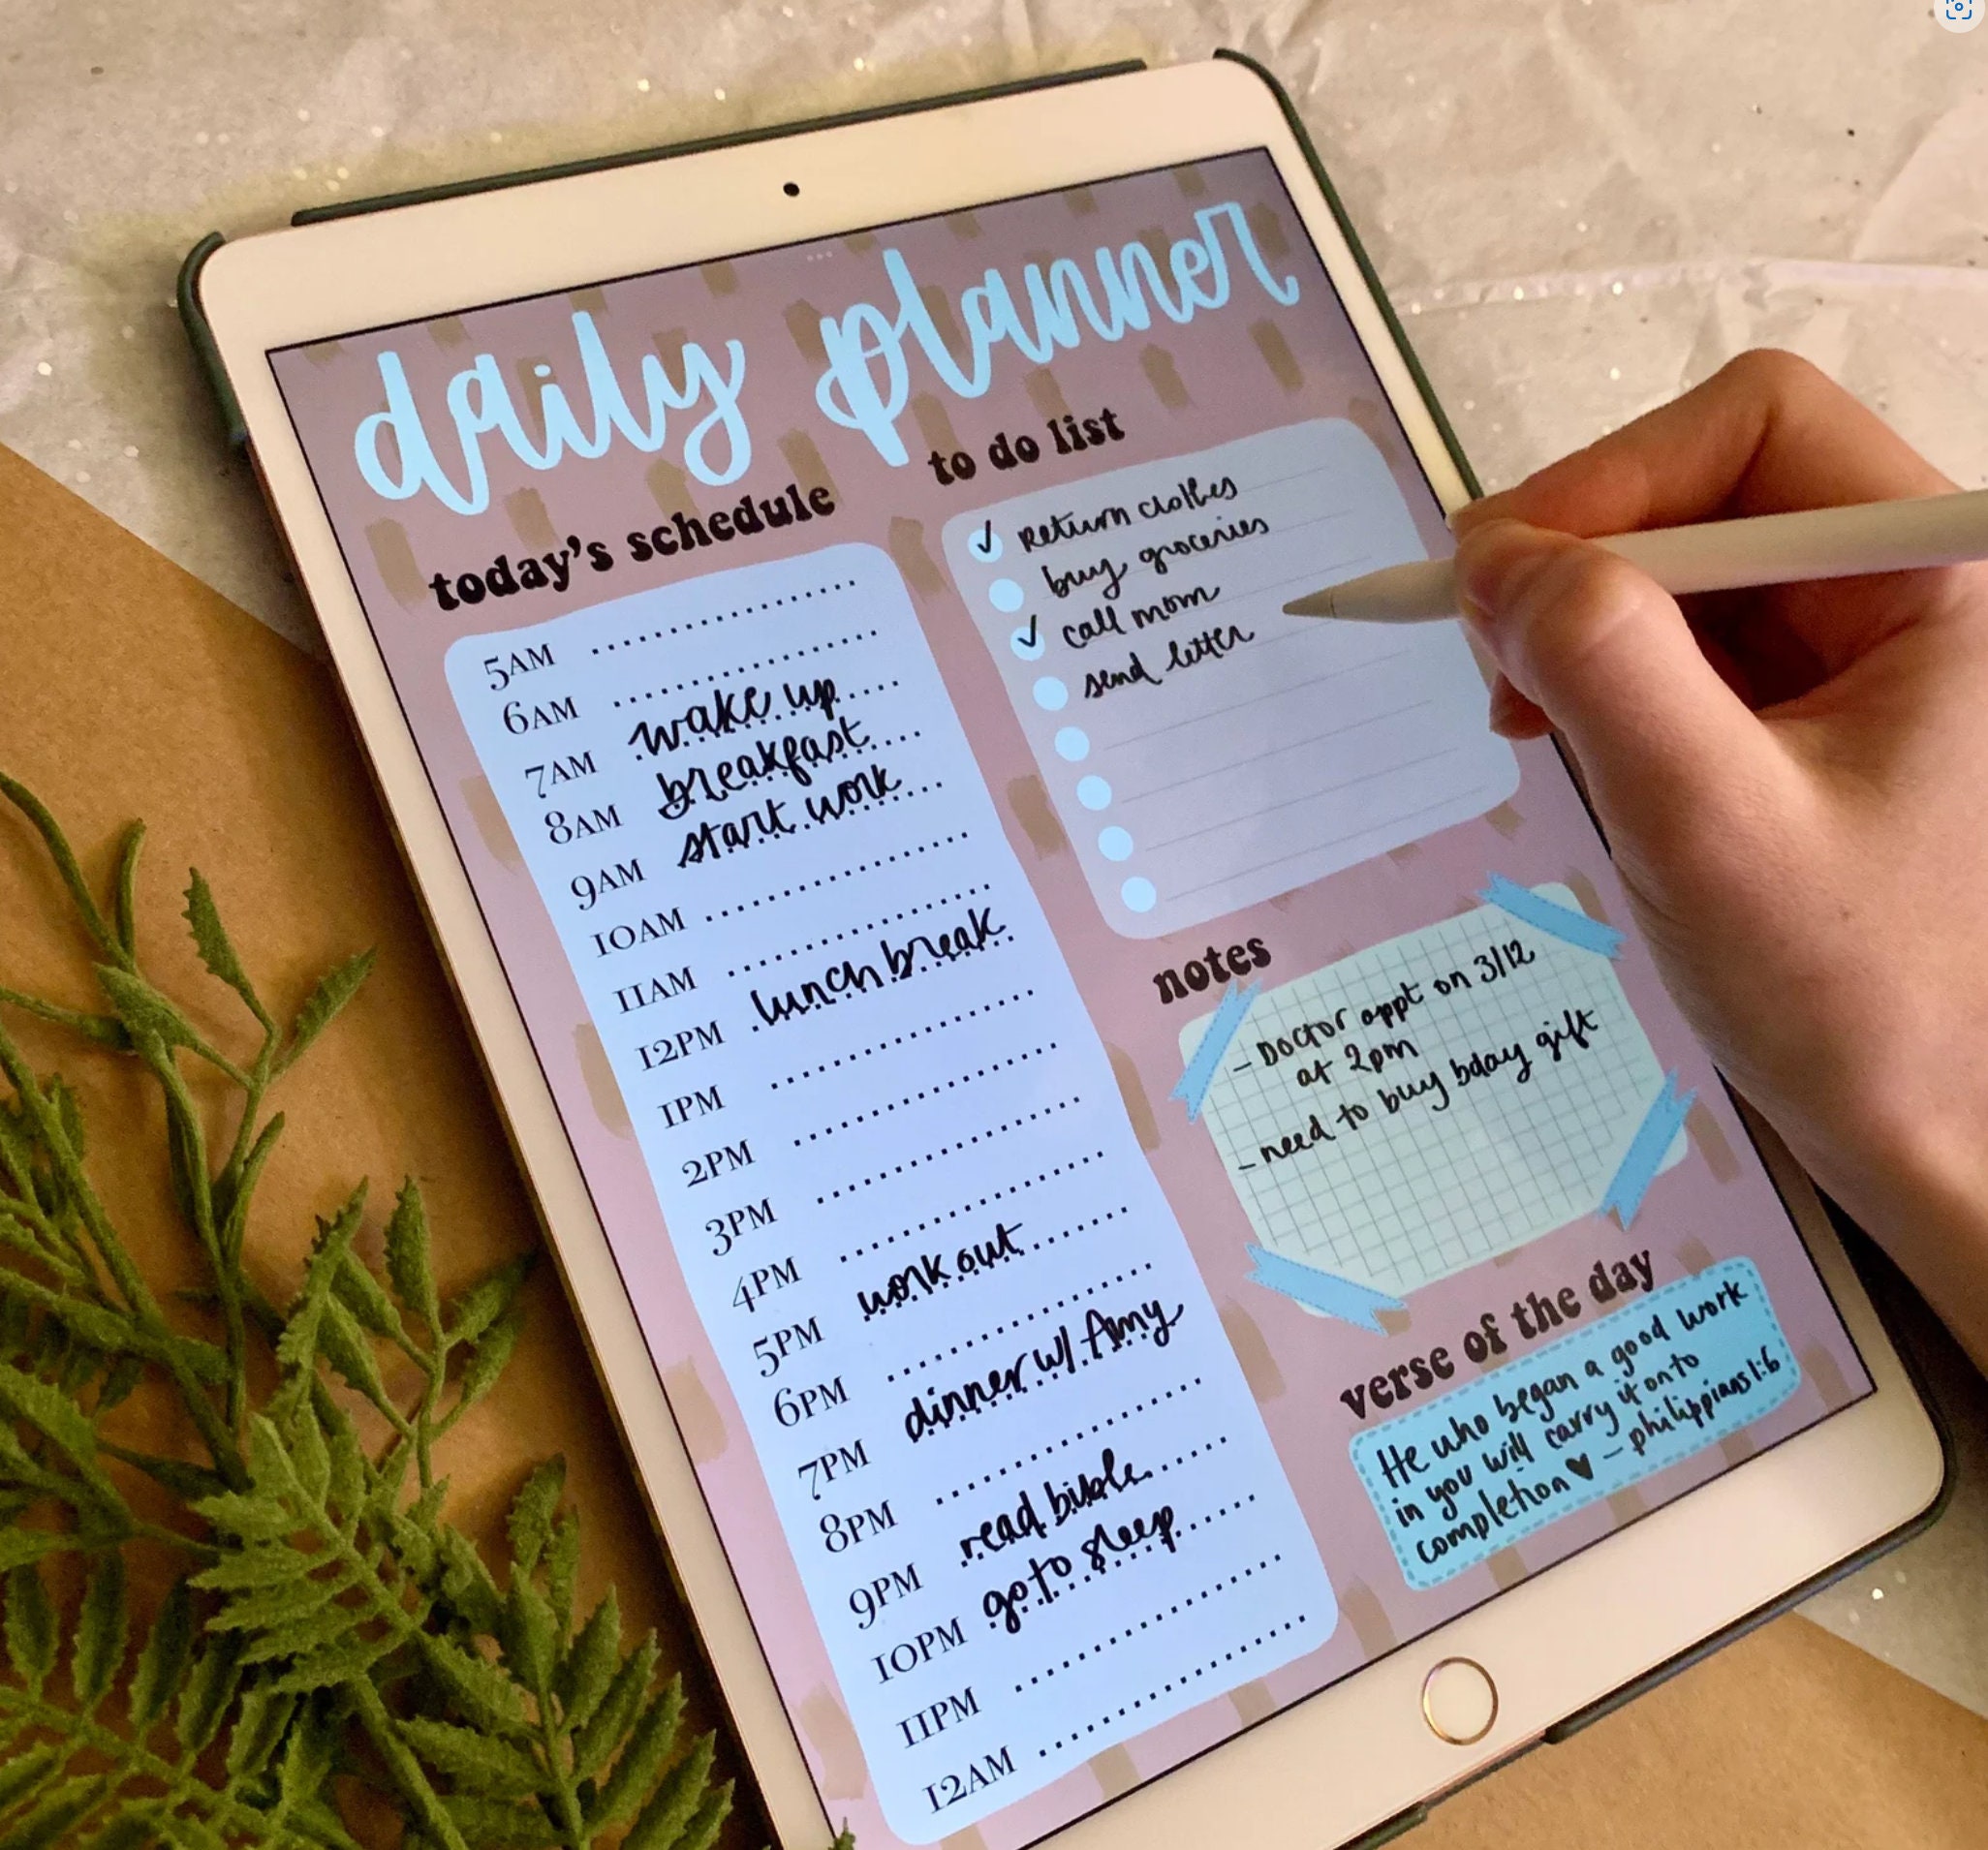 daily planner
today's schedule
5AM
6AM
7AM wake up
8AM breakfast
9AM start work
10AM
11AM
12PM lunch break
1PM
2PM
3PM
4PM
5PM work out
6PM
7PM dinner w/ Amy
8PM
9PM read bible
10PM go to sleep
11PM
12AM
to do list
✓ return clothes
buy groceries
✓ call mom
send letter
notes
- Doctor appt on 3/12
at 2pm
- need to buy bday gift
verse of the day
He who began a good work
in you will carry it onto
completion ♥ - philippians 1:6